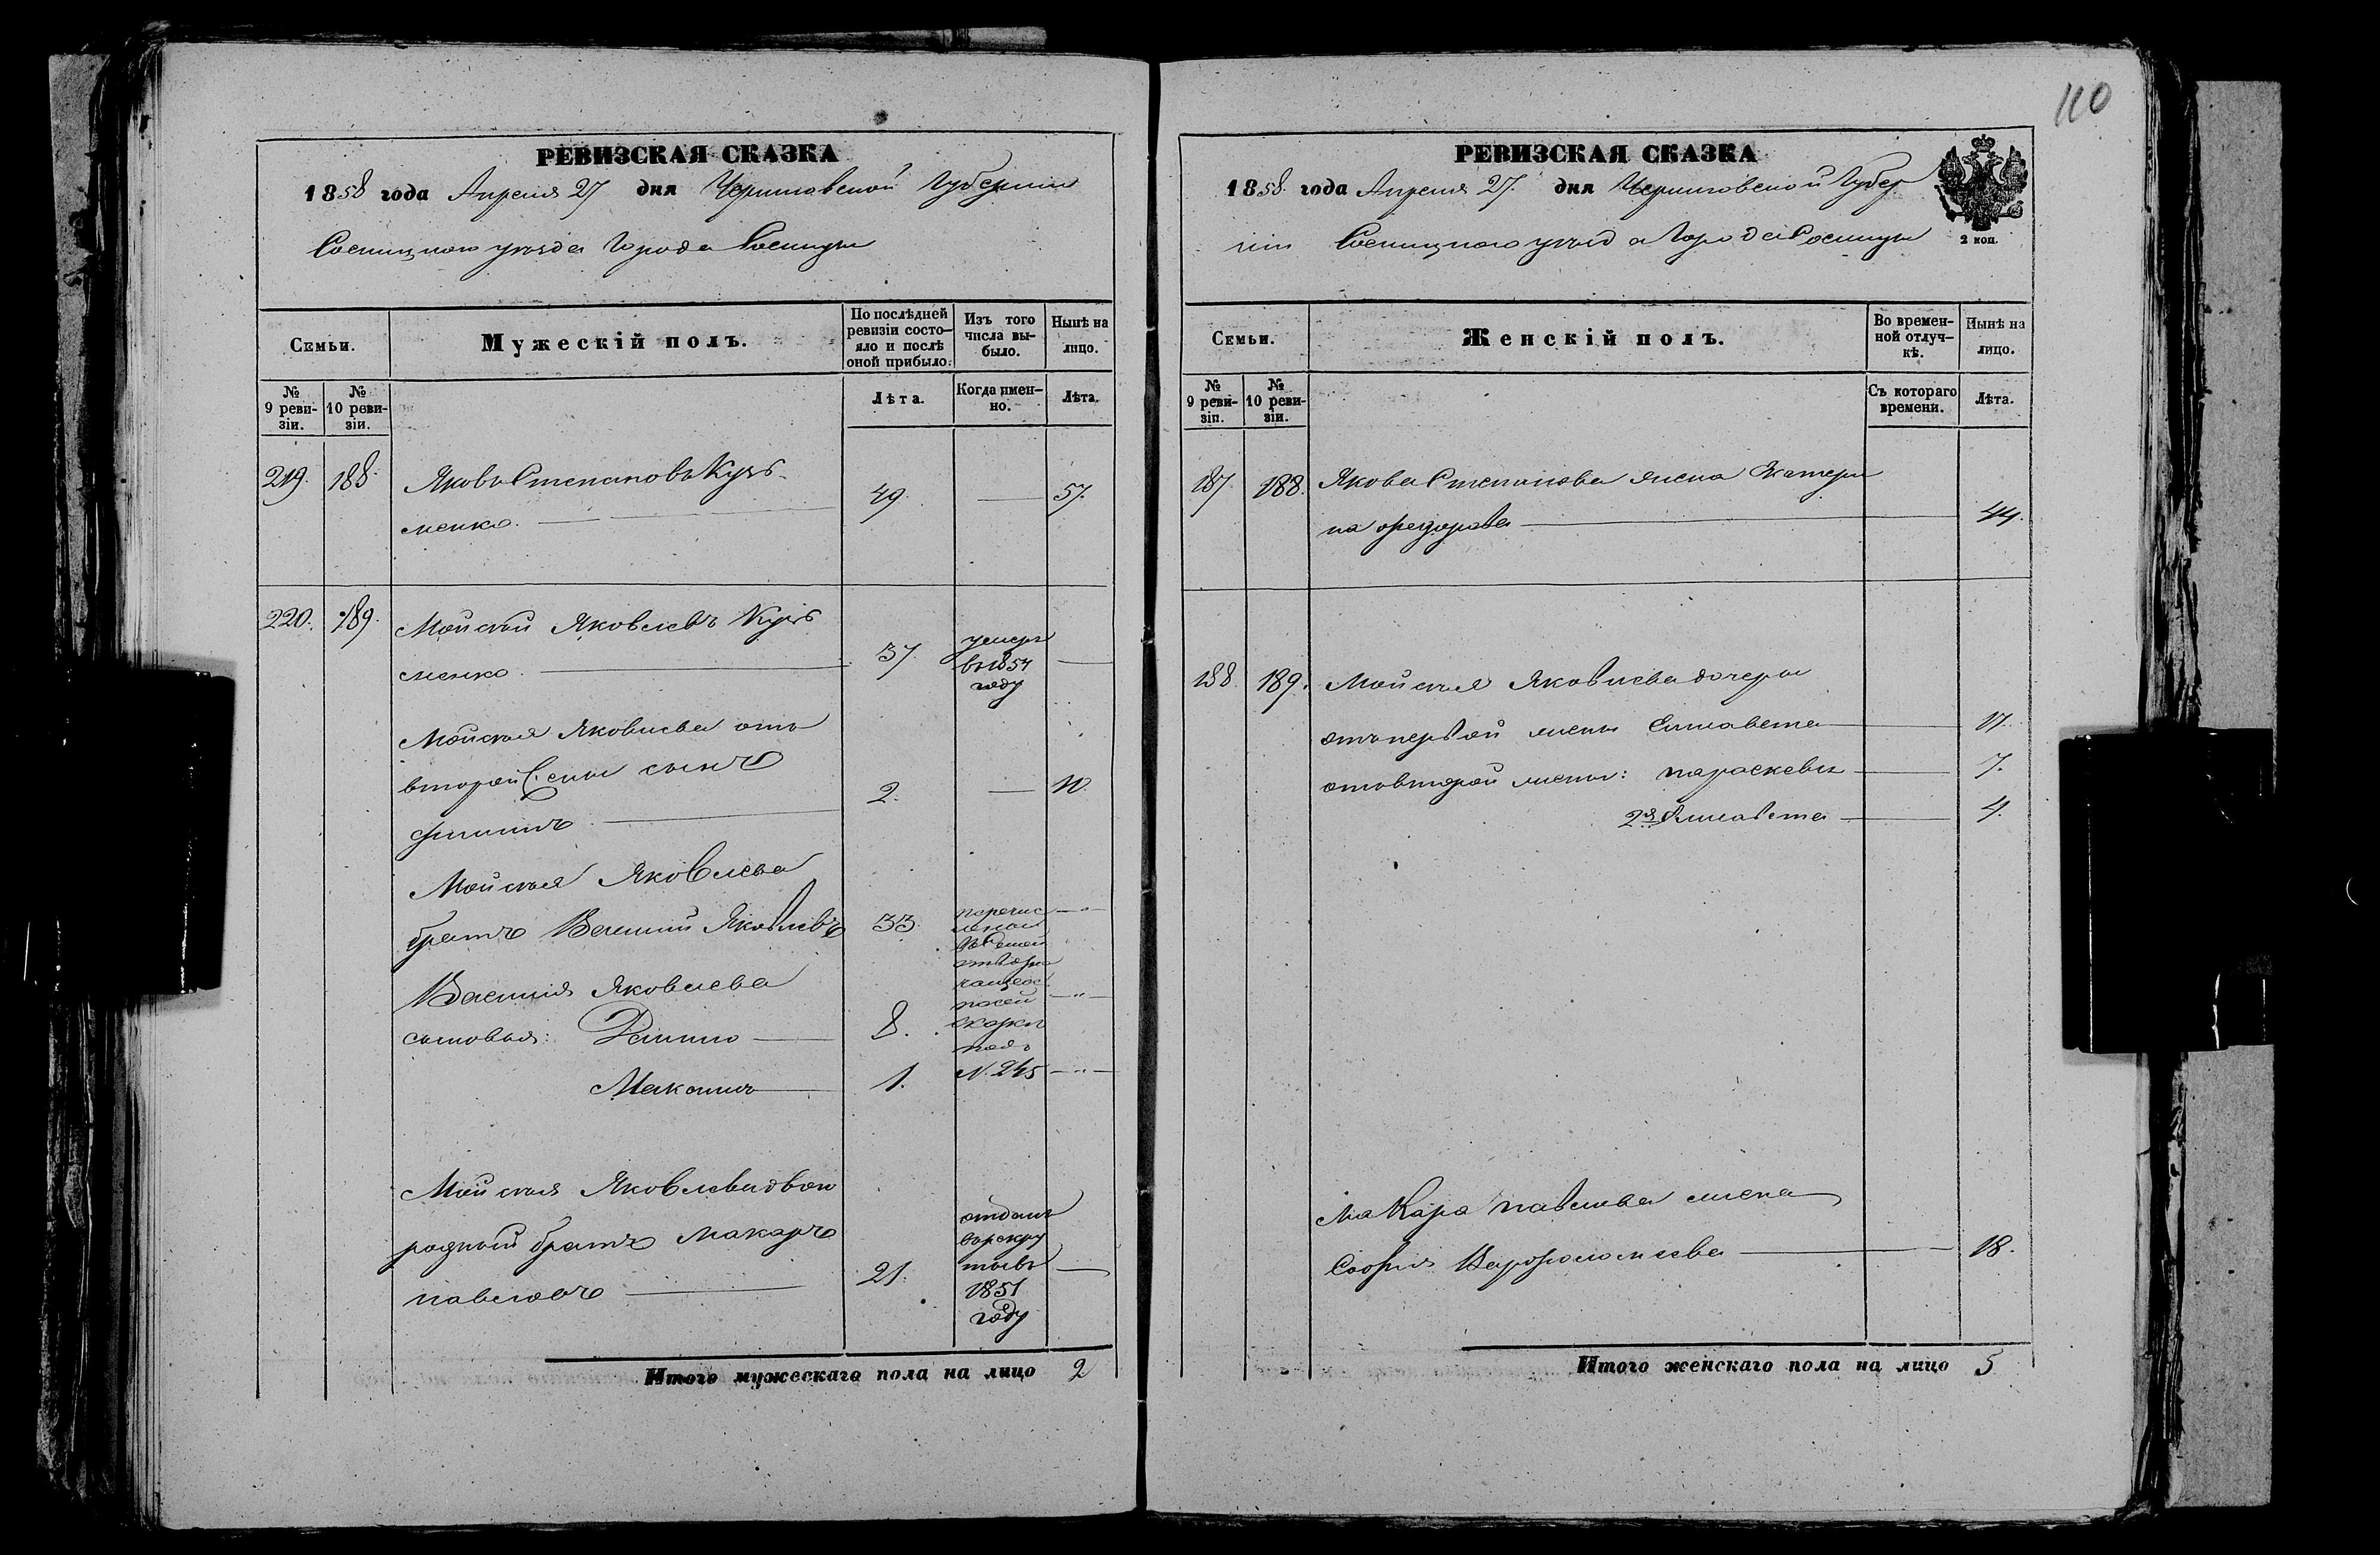 110
РЕВИЗСКАЯ СКАЗКА
1858 года Апреля 27 дня Черниговской Губернии
Сосницкого уезда Города Сосницы
Семьи.
Мужескій полъ.
По послѣдней ревизіи состояло и послѣ оной прибыло.
Изъ того числа выбыло.
Нынѣ на лицо.
№ 9 ревизіи.
№ 10 ревизіи.
Лѣта.
Когда именно.
Лѣта.
219. 188. Яковъ Степановъ Кузь-
менко. 49. 57.
220. 189. Мойсей Яковлевъ Кузь
менко 37. умеръ
въ 1854
году
Мойсея Яковлева отъ
второй жены сынъ
Филипъ 2. 10.
Мойсея Яковлева
братъ Василий Яковлевъ 33. перечис
Василия Яковлева
сыновья: Данило 8.
сказки
подъ
Максимъ 1. N. 245
Мойсея Яковлева двою
родный братъ Макаръ
павловъ 21. отданъ
въ рекру
ты въ
1851
году
Итого мужескаго пола на лицо 2
РЕВИЗСКАЯ СКАЗКА
1858. года Апреля 27. дня Черниговской Губер
нии Сосницкого уезда Города Сосницы
2 коп.
Семьи.
Женскій полъ.
Во временной отлучкѣ.
Нынѣ на лицо.
№ 9 ревизіи.
№ 10 ревизіи.
Съ котораго времени.
Лѣта.
187. 188. Якова Степанова жена Екатери
на Федорова 44.
188. 189. Мойсея Яковлева дочери
отъ первой жены Елисавета 17.
отъ второй жены: параскевы 7.
2я Елисавета 4.
Макара павлова жена
София Варфоломеева 18.
Итого женскаго пола на лицо 5